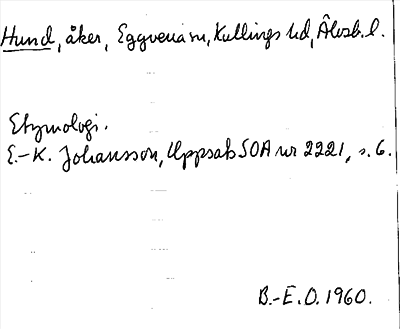 Hund, åker, Eggvena sn, Kullings hd, Älvsb. l.
Etymologi.
E.-K. Johansson, Uppsats SOA nr 2221, s. 6.
B.-E. O. 1960.